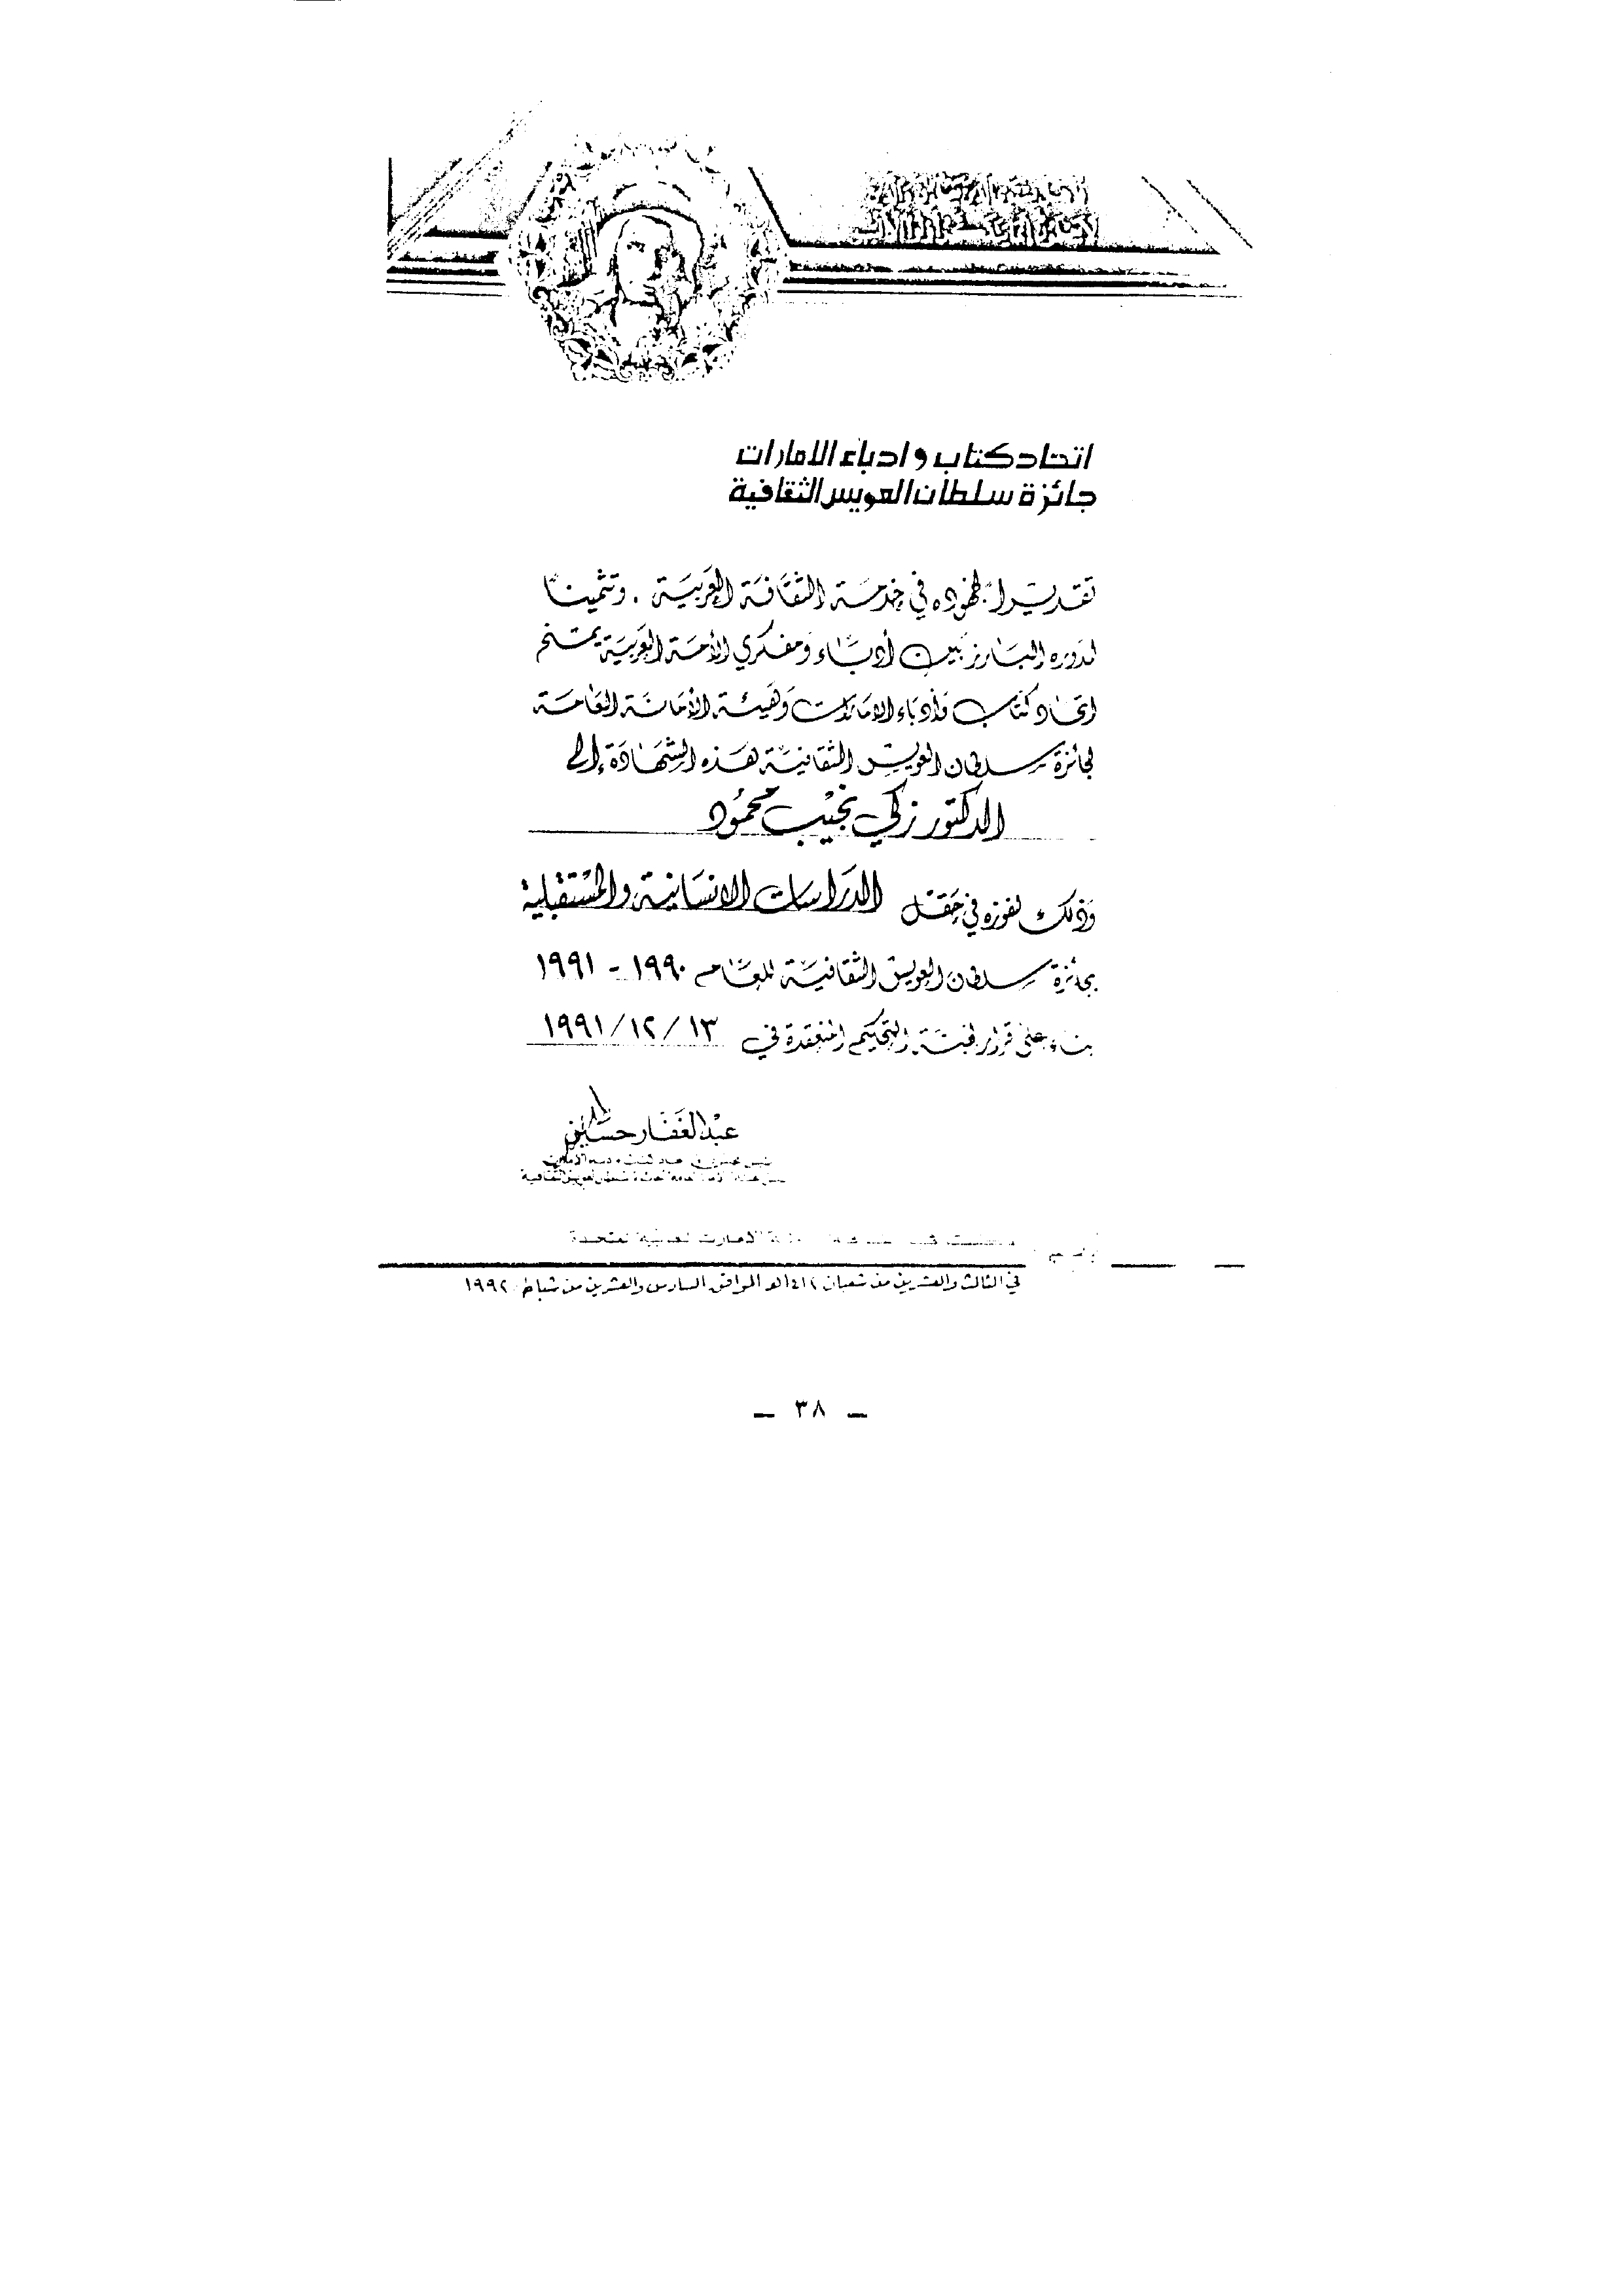 اتحاد كتاب و ادباء الامارات
جائزة سلطان العويس الثقافية
تقديرًا لجهوده في خدمة الثقافة العربية . وتثمينًا
لدوره البارز بين أدباء ومفكري الأمة العربية يمنح
اتحاد كتاب وأدباء الامارات وهيئة الأمانة العامة
لجائزة سلطان العويس الثقافية هذه الشهادة إلى
الدكتور زكي نجيب محمود
وذلك لفوزه في حقل الدراسات الانسانية والمستقبلية
بجائزة سلطان العويس الثقافية للعام ١٩٩٠ - ١٩٩١
بناء على قرار لجنة التحكيم المنعقدة في ١٣/ ١٢/ ١٩٩١
عبد الغفار حسين
في الثالث والعشرين من شعبان ١٤١٢هـ الموافق السادس والعشرين من شباط ١٩٩٢
– ٣٨ –